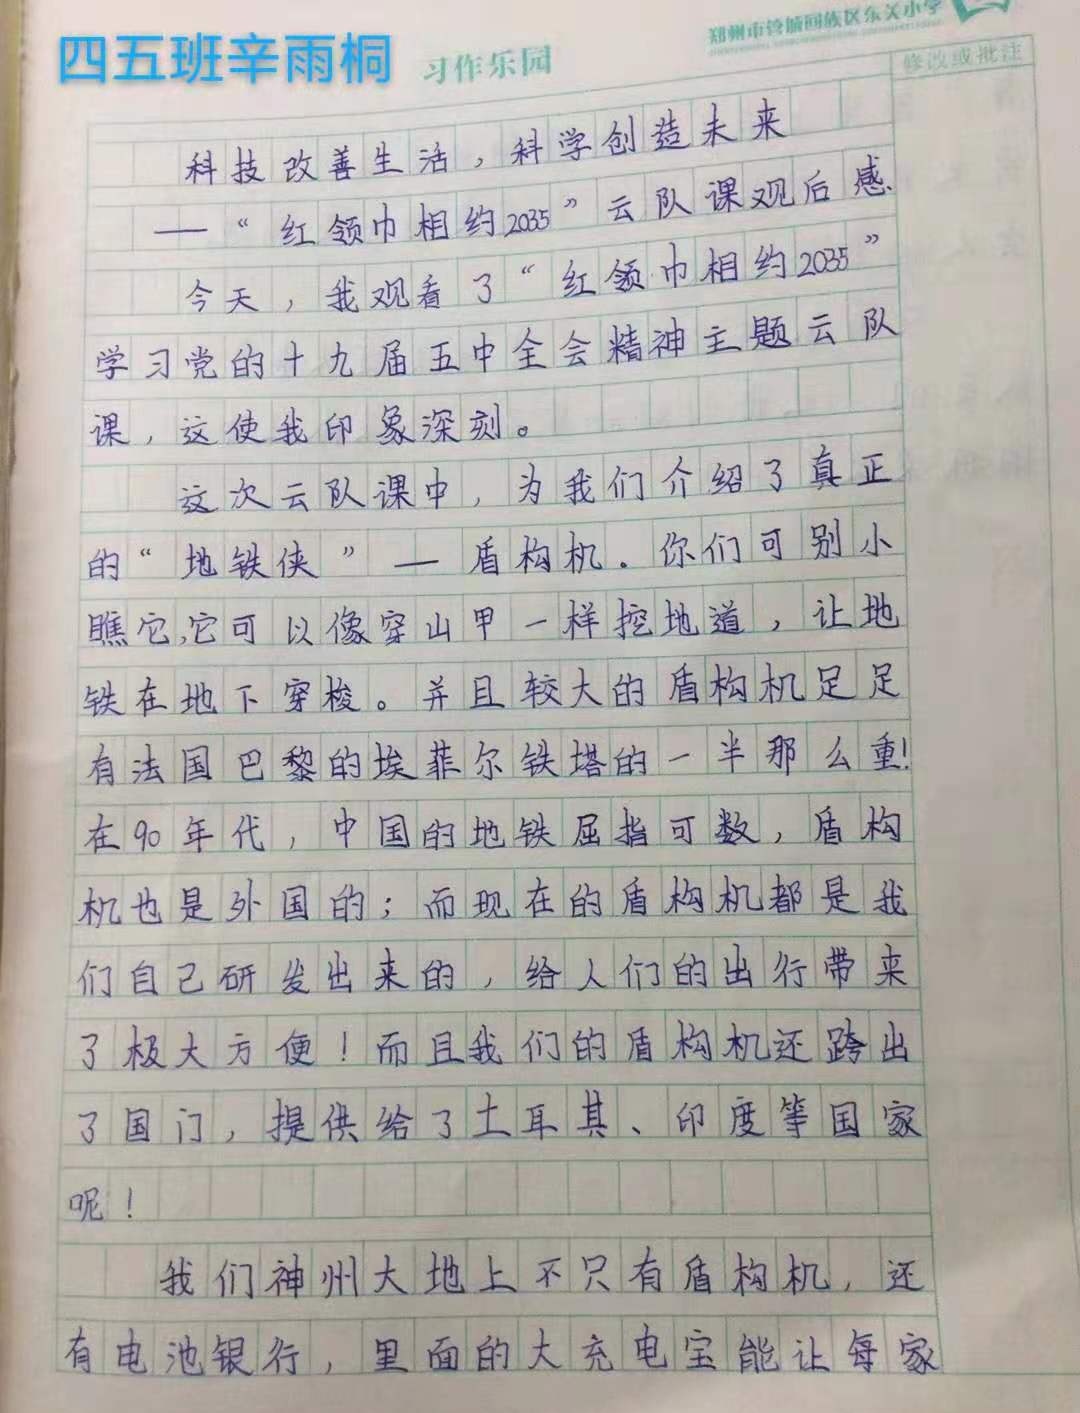 郑州市管城回族区东关小学
四五班辛雨桐
习作乐园
修改或批注
科技改善生活，科学创造未来
——“红领巾相约2035”云队课观后感
今天，我观看了“红领巾相约2035”
学习党的十九届五中全会精神主题云队
课，这使我印象深刻。
这次云队课中，为我们介绍了真正
的“地铁侠”——盾构机。你们可别小
瞧它，它可以像穿山甲一样挖地道，让地
铁在地下穿梭。并且较大的盾构机足足
有法国巴黎的埃菲尔铁塔的一半那么重！
在90年代，中国的地铁屈指可数，盾构
机也是外国的；而现在的盾构机都是我
们自己研发出来的，给人们的出行带来
了极大方便！而且我们的盾构机还跨出
了国门，提供给了土耳其、印度等国家
呢！
我们神州大地上不只有盾构机，还
有电池银行，里面的大充电宝能让每家